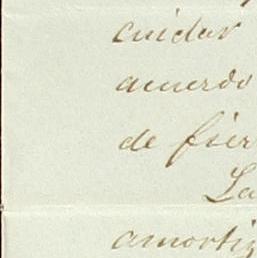 cuidar
acuerdo
de fier
La
amortiz